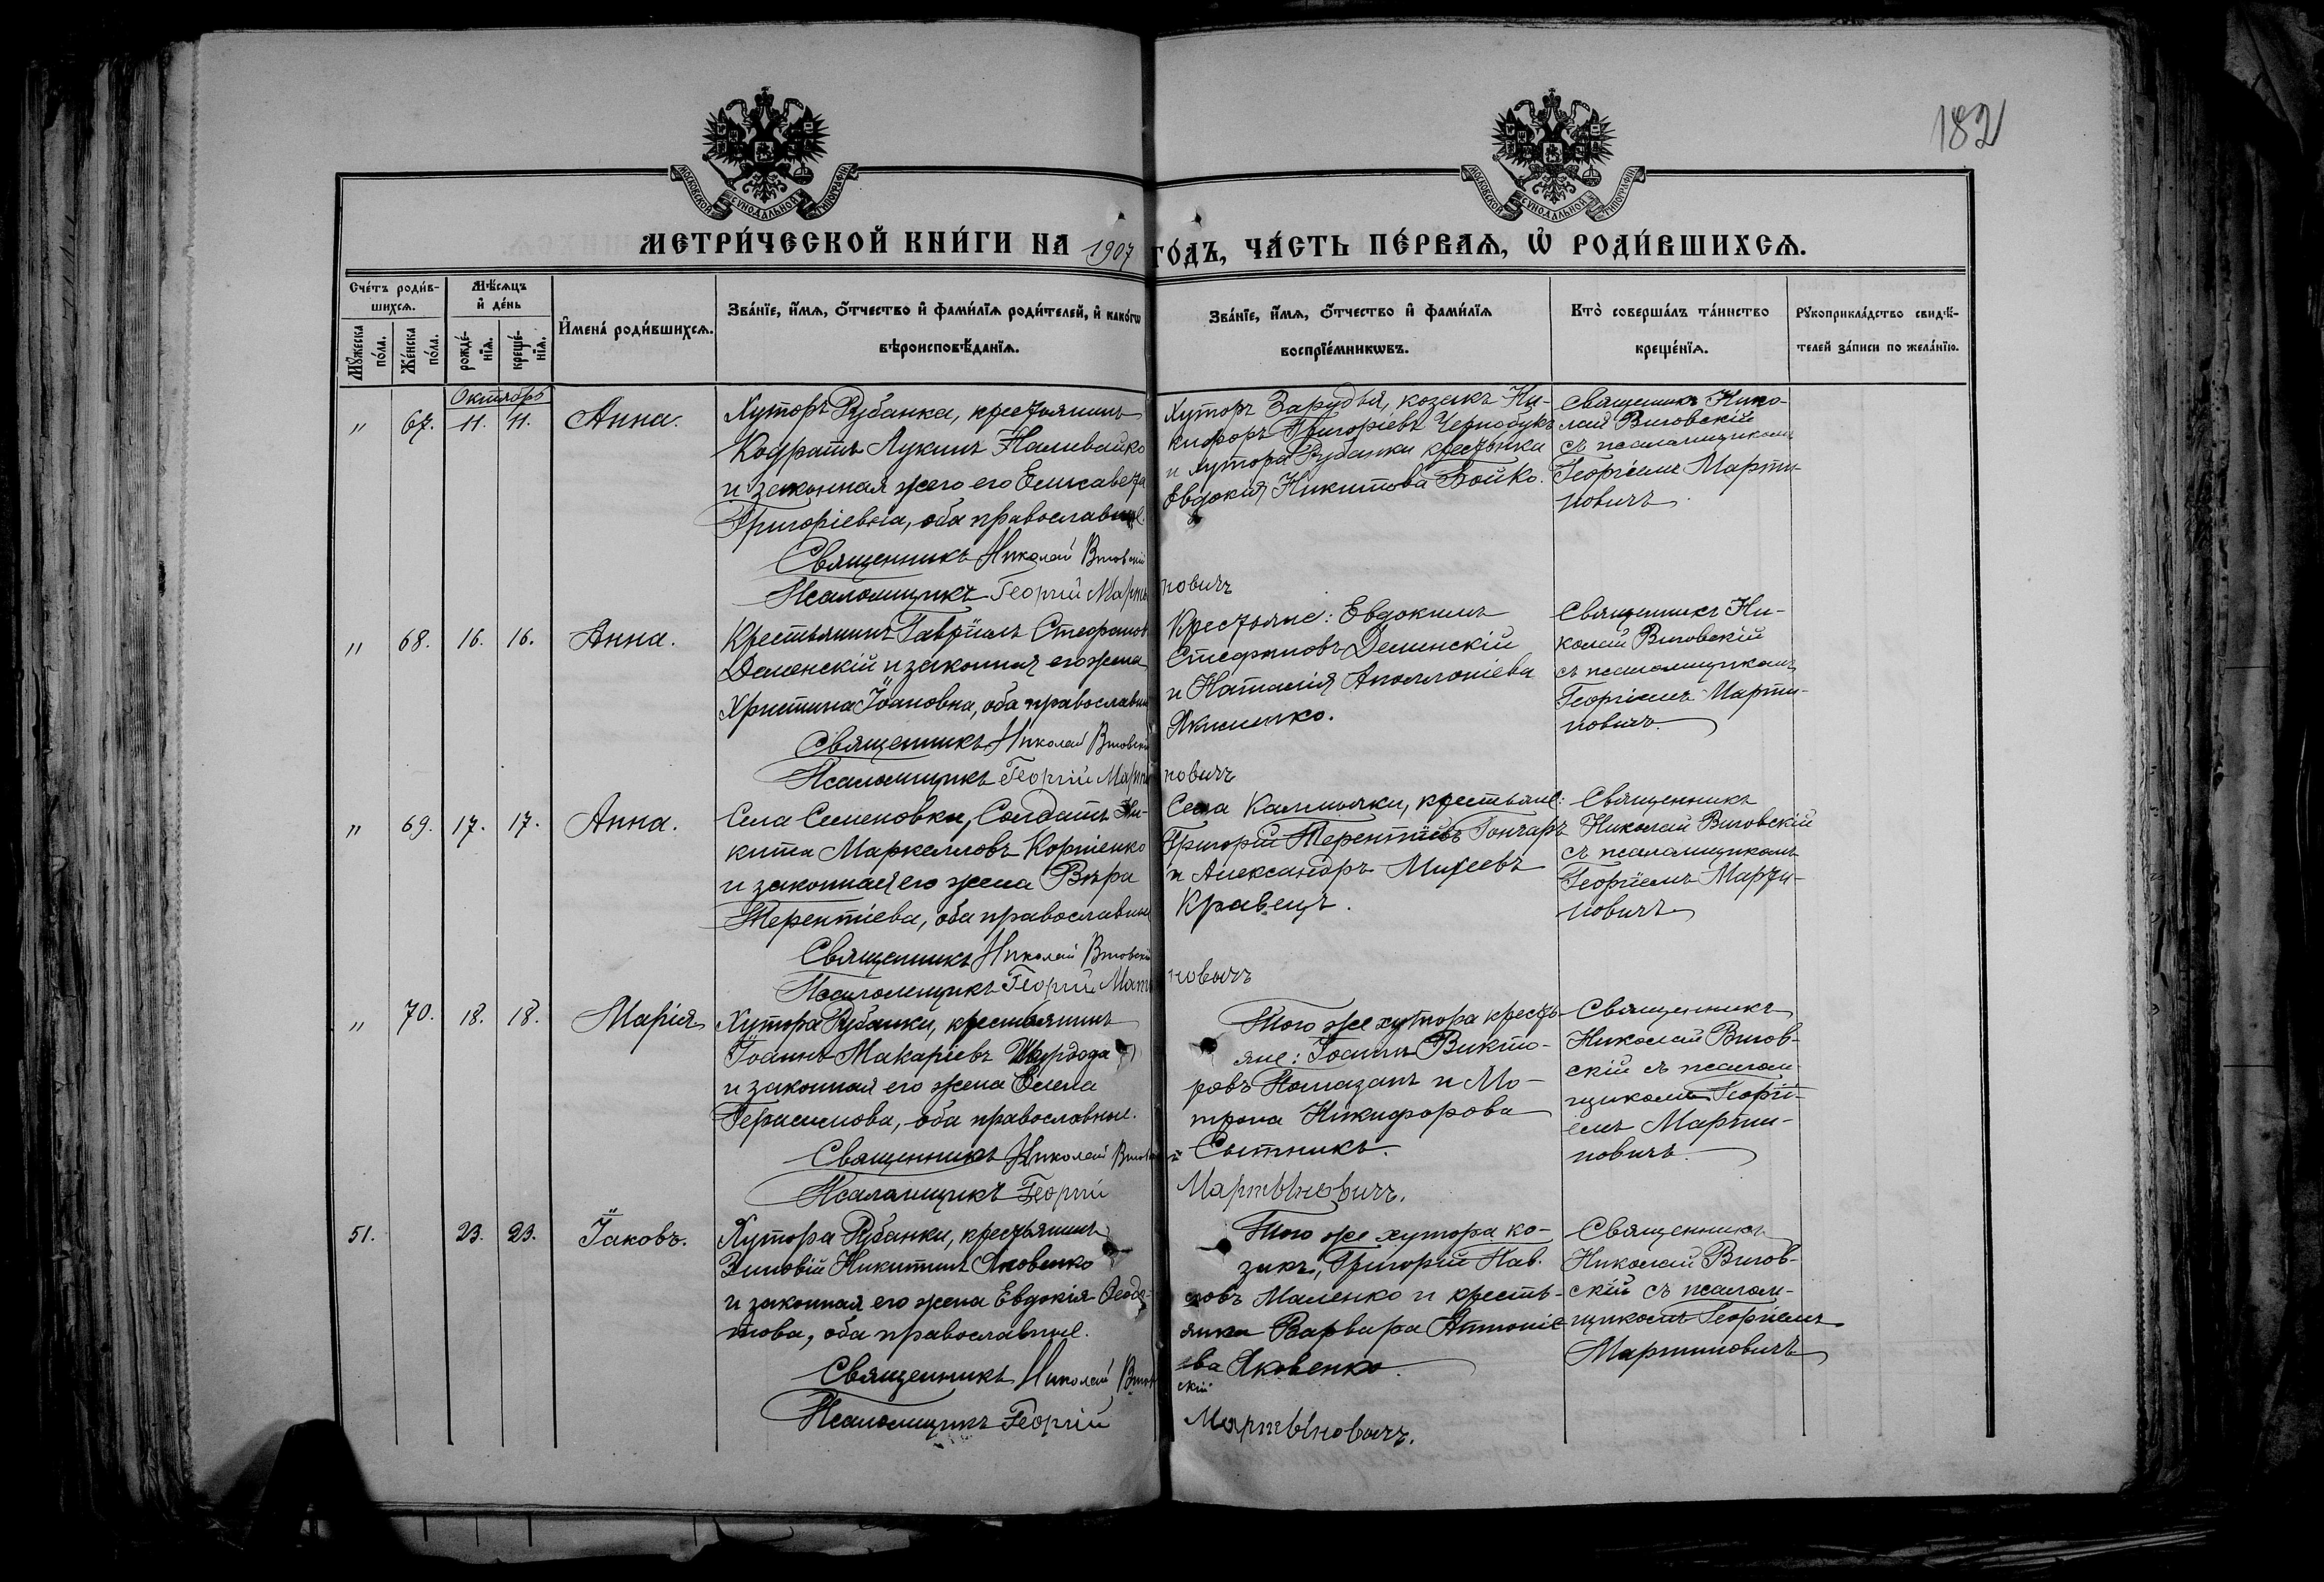 182
МОСКОВСКОЙ СѴНОДАЛЬНОЙ ТИПОГРАФІИ
МОСКОВСКОЙ СѴНОДАЛЬНОЙ ТИПОГРАФІИ
МЕТРИ́ЧЕСКОЙ КНИ́ГИ НА 1907 ГО́ДЪ, ЧА́СТЬ ПЕ́РВАѦ, Ѡ҆ РОДИ́ВШИХСѦ.
Сче́тъ роди́в-
шихсѧ.
Мꙋ́жеска по́ла.
Же́нска по́ла.
Мѣ́сѧцъ
и҆ де́нь
рожде́-
нїѧ.
креще́-
нїѧ.
И҆мена̀ роди́вшихсѧ.
Зва́нїе, и҆́мѧ, ѻ҆́тчество и҆ фами́лїѧ роди́телей, и҆ како́гѡ
вѣроисповѣ́данїѧ.
Зва́нїе, и҆́мѧ, ѻ҆́тчество и҆ фами́лїѧ
воспрїе́мникѡвъ.
Кто̀ соверша́лъ та́инство
креще́нїѧ.
Рꙋкоприкла́дство свидѣ́-
телей за́писи по жела́нїю.
Октябрь
" 67. 11. 11. Анна.
Хуторъ Рубанка, крестьянинъ
Кодратъ Лукинъ Наливайко
и законная жего его Елисавета
Григоріевна, оба православные.
Священникъ Николай Виговскій
Псаломщикъ Георгій Мартиновичъ
Хуторъ Зарудья, козакъ Ни-
кифоръ Григоріевъ Чернобукъ
и хутора Рубанки крестьянка
Евдокія Никитова Бойко.
Священникъ Нико-
лай Виговскій
съ псаломщикомъ
Георгіемъ Марти-
новичъ
" 68. 16. 16. Анна.
Крестьянинъ Гавріилъ Стефановъ
Деменскій и законная его жена
Христина Іоановна, оба православные
Священникъ Николай Виговскій
Псаломщикъ Георгій Мартиновичъ
Крестьяне: Евдокимъ
Стефановъ Деминскій
и Наталія Аполлоніева
Якименко.
Священникъ Ни-
колай Виговскій
съ псаломщикомъ
Георгіемъ Марти-
новичъ.
" 69. 17. 17. Анна.
Села Семеновки, Солдатъ Ни-
кита Маркелловъ Корніенко
и законная его жена Вѣра
Терентіева, оба православные
Священникъ Николай Виговскій
Псаломщикъ Георгій Мартиновичъ
Села Калмыки, крестьяне:
Григорій Терентіевъ Гончаръ
и Александръ Михеевъ
Кравецъ.
Священникъ
Николай Виговскій
съ псаломщикомъ
Георгіемъ Марти-
новичъ
" 70. 18. 18. Марія
Хутора Рубанки, крестьянинъ
Іоаннъ Макаріевъ
и законная его жена Елена
Герасимова, оба православные.
Священникъ Николай Виговскій
Псаломщикъ Георгій Мартыновичъ.
Того же хутора кресть-
яне: Іоаннъ Викто-
ровъ Помазанъ и Мо-
трона Никифорова
Сытникъ.
Священникъ
Николай Вигов-
скій съ псалом-
щикомъ Георгі-
емъ Марти-
новичъ.
51. 23. 23. Іаковъ.
Хутора Рубанки, крестьянинъ
Зиновій Никитинъ Яковенко
и законная его жена Евдокія Ѳеодо-
това, оба православные.
Священникъ Николай Виговскій
Псаломщикъ Георгій Мартыновичъ.
Того же хутора ко-
закъ, Григорій Пав-
ловъ Маленко и кресть-
янка Варвара Антоніе-
ва Яковенко.
Священникъ
Николай Вигов-
скій съ псалом-
щикомъ Георгіемъ
Мартиновичъ